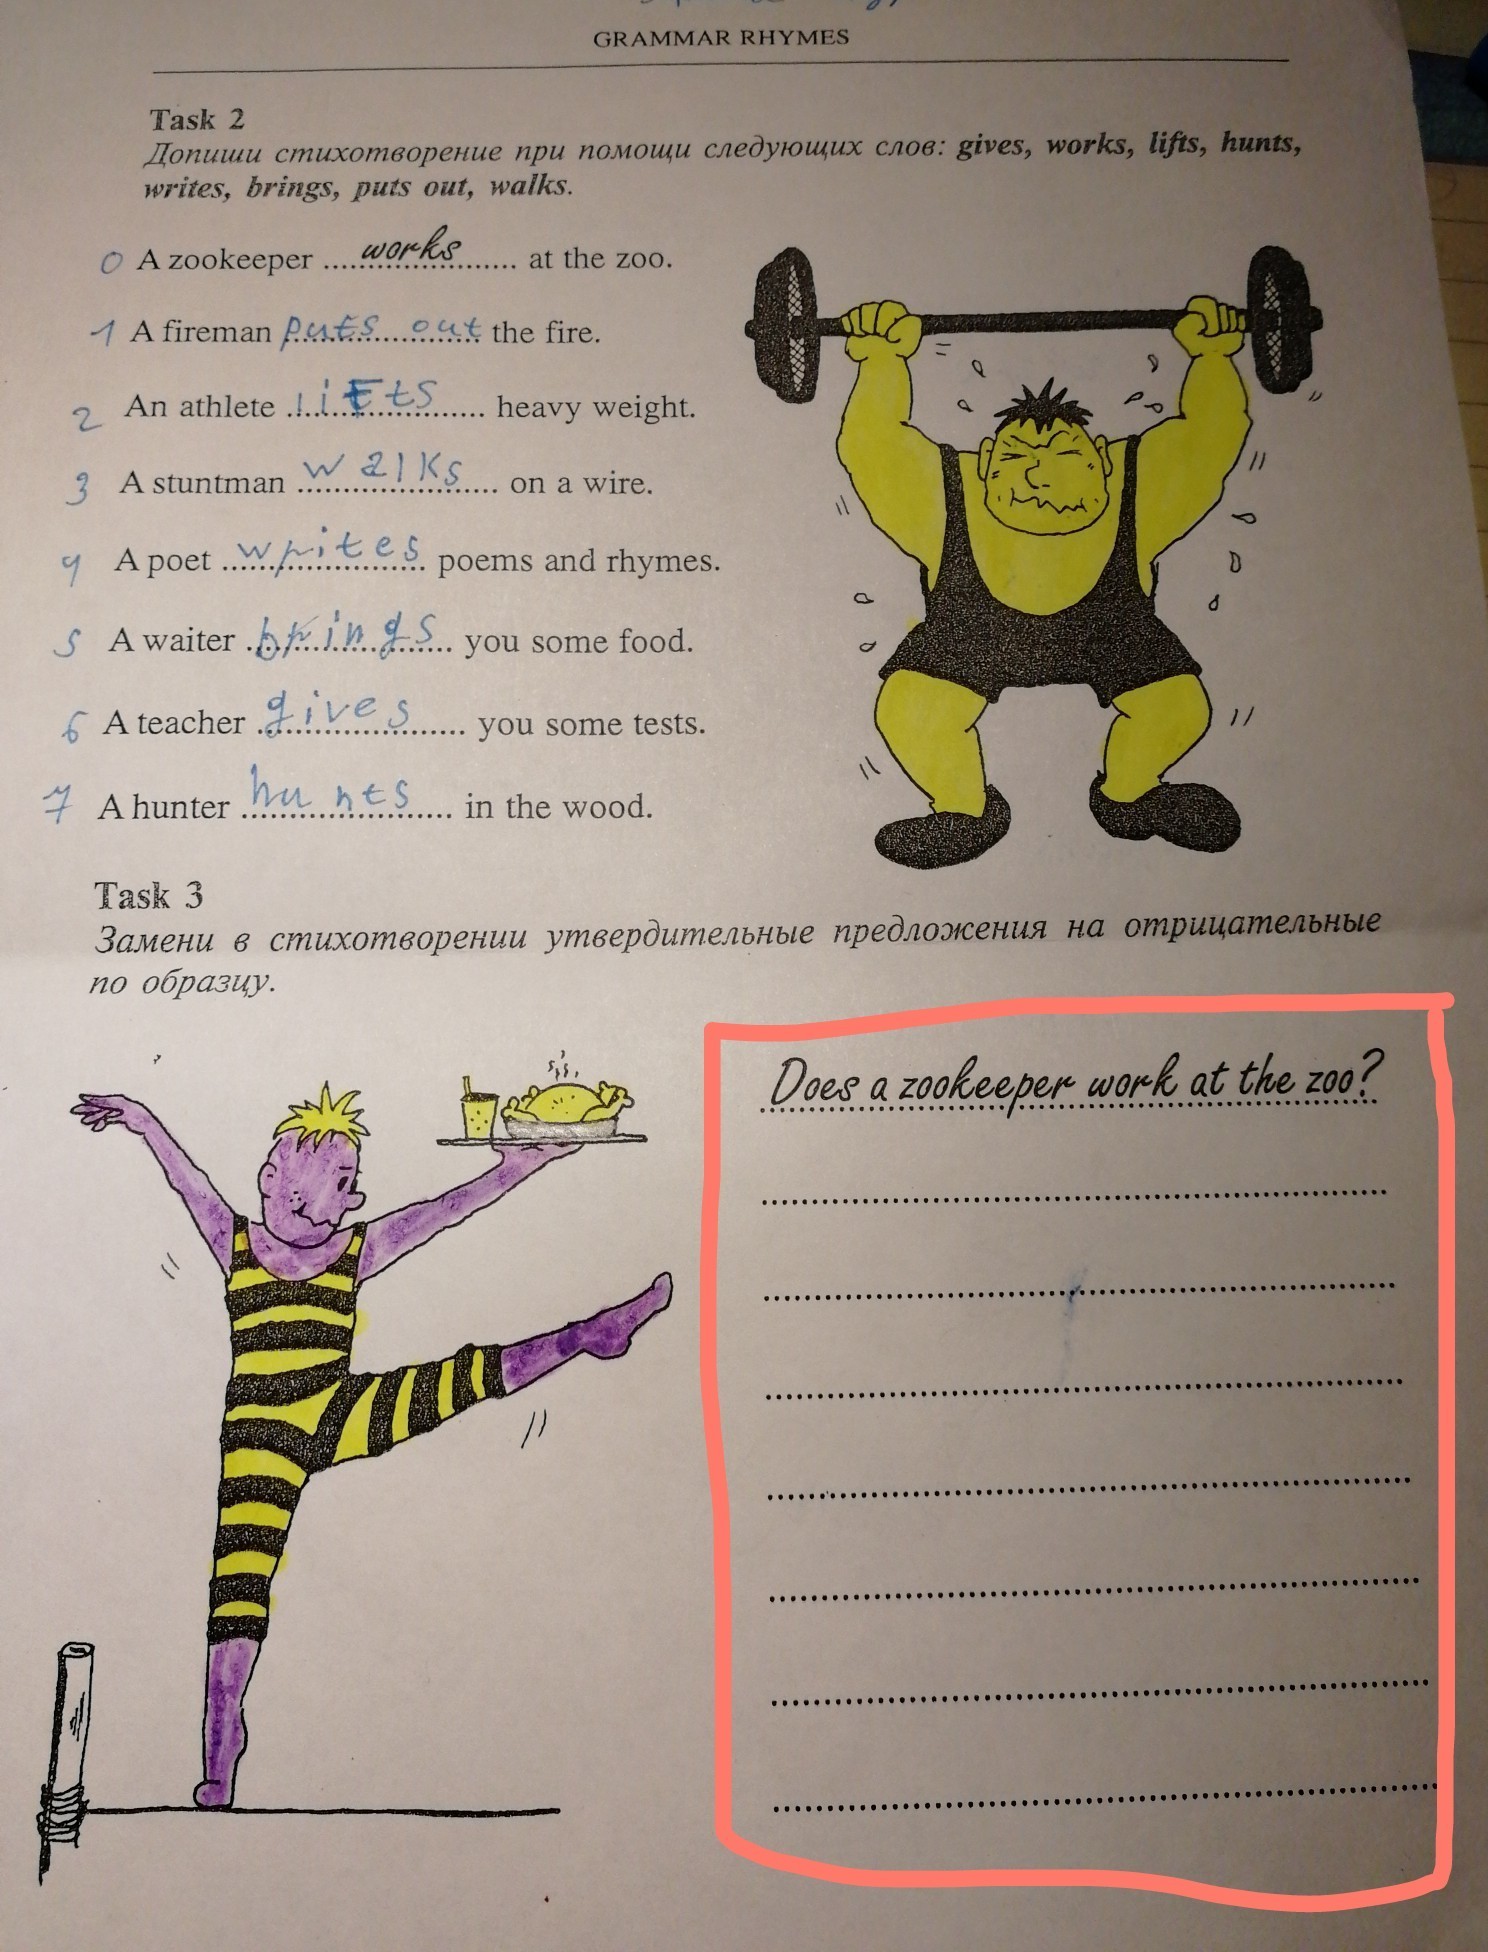 GRAMMAR RHYMES
Task 2
Допиши стихотворение при помощи следующих слов: gives, works, lifts, hunts,
writes, brings, puts out, walks.
0 A zookeeper works at the zoo.
1 A fireman puts out the fire.
2 An athlete lifts heavy weight.
3 A stuntman walks on a wire.
4 A poet writes poems and rhymes.
5 A waiter brings you some food.
6 A teacher gives you some tests.
7 A hunter hunts in the wood.
Task 3
Замени в стихотворении утвердительные предложения на отрицательные
по образцу.
Does a zookeeper work at the zoo?